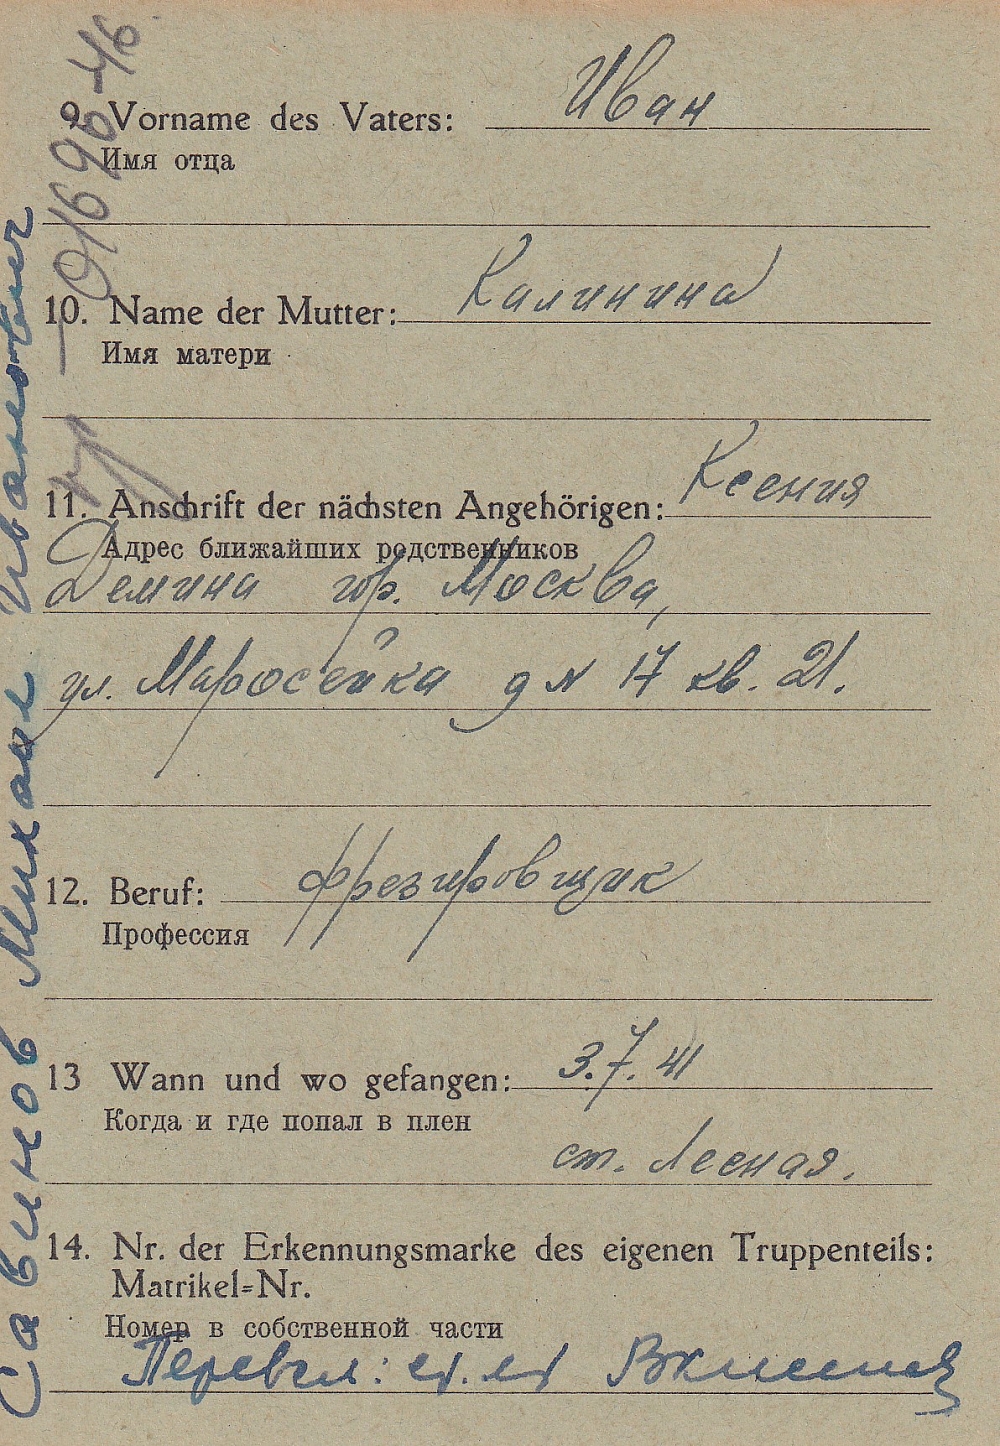 9. Vorname des Vaters: Иван
Имя отца
10. Name der Mutter: Калинина
Имя матери
11. Anschrift der nächsten Angehörigen: Ксения
Адрес ближайших родственников
Демина гор. Москва,
ул. Маросейка д N 17 кв. 21.
12. Beruf: фрезировщик
Профессия
13 Wann und wo gefangen: 3.7.41
Когда и где попал в плен
ст. Лесная.
14. Nr. der Erkennungsmarke des eigenen Truppenteils:
Matrikel=Nr.
Номер в собственной части
Перевел:
Савинов Михаил Иванович